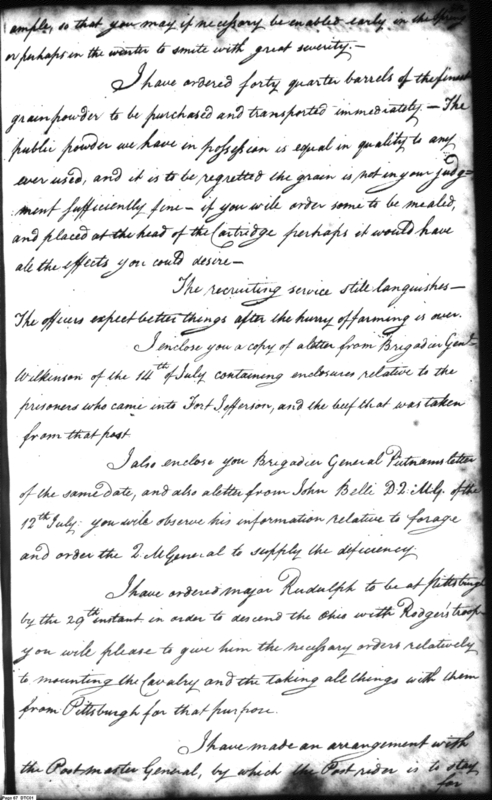 ample, so that you may if necessary be enabled early in the Spring
or perhaps in the winter to smite with great severity.—
I have ordered forty quarter barrels of the finest
grain powder to be purchased and transported immediately — The
public powder we have in possession is equal in quality to any
ever used, and it is to be regretted the grain is not in your judg=
ment sufficiently fine — if you will order some to be mealed,
and placed at the head of the Cartridge perhaps it would have
all the effects you could desire —
The recruiting service still languishes —
The officers expect better things after the hurry of farming is over.
I enclose you a copy of a letter from Brigadier Genl
Wilkinson of the 14th of July containing enclosures relative to the
prisoners who came into Fort Jefferson, and the beef that was taken
from that post
I also enclose you Brigadier General Putnams letter
of the same date, and also a letter from John Belli D.Q.M.G. of the
12th July: you will observe his information relative to forage
and order the Q M General to supply the deficiency.
I have ordered major Rudulph to be at Pittsburgh
by the 29th instant in order to descend the Ohio with Rodgers's troop
you will please to give him the necessary orders relatively
to mounting the Cavalry and the taking all things with them
from Pittsburgh for that purpose.
I have made an arrangement with
the Post master General, by which the Post rider is to stay
for
Page 67 DTC01